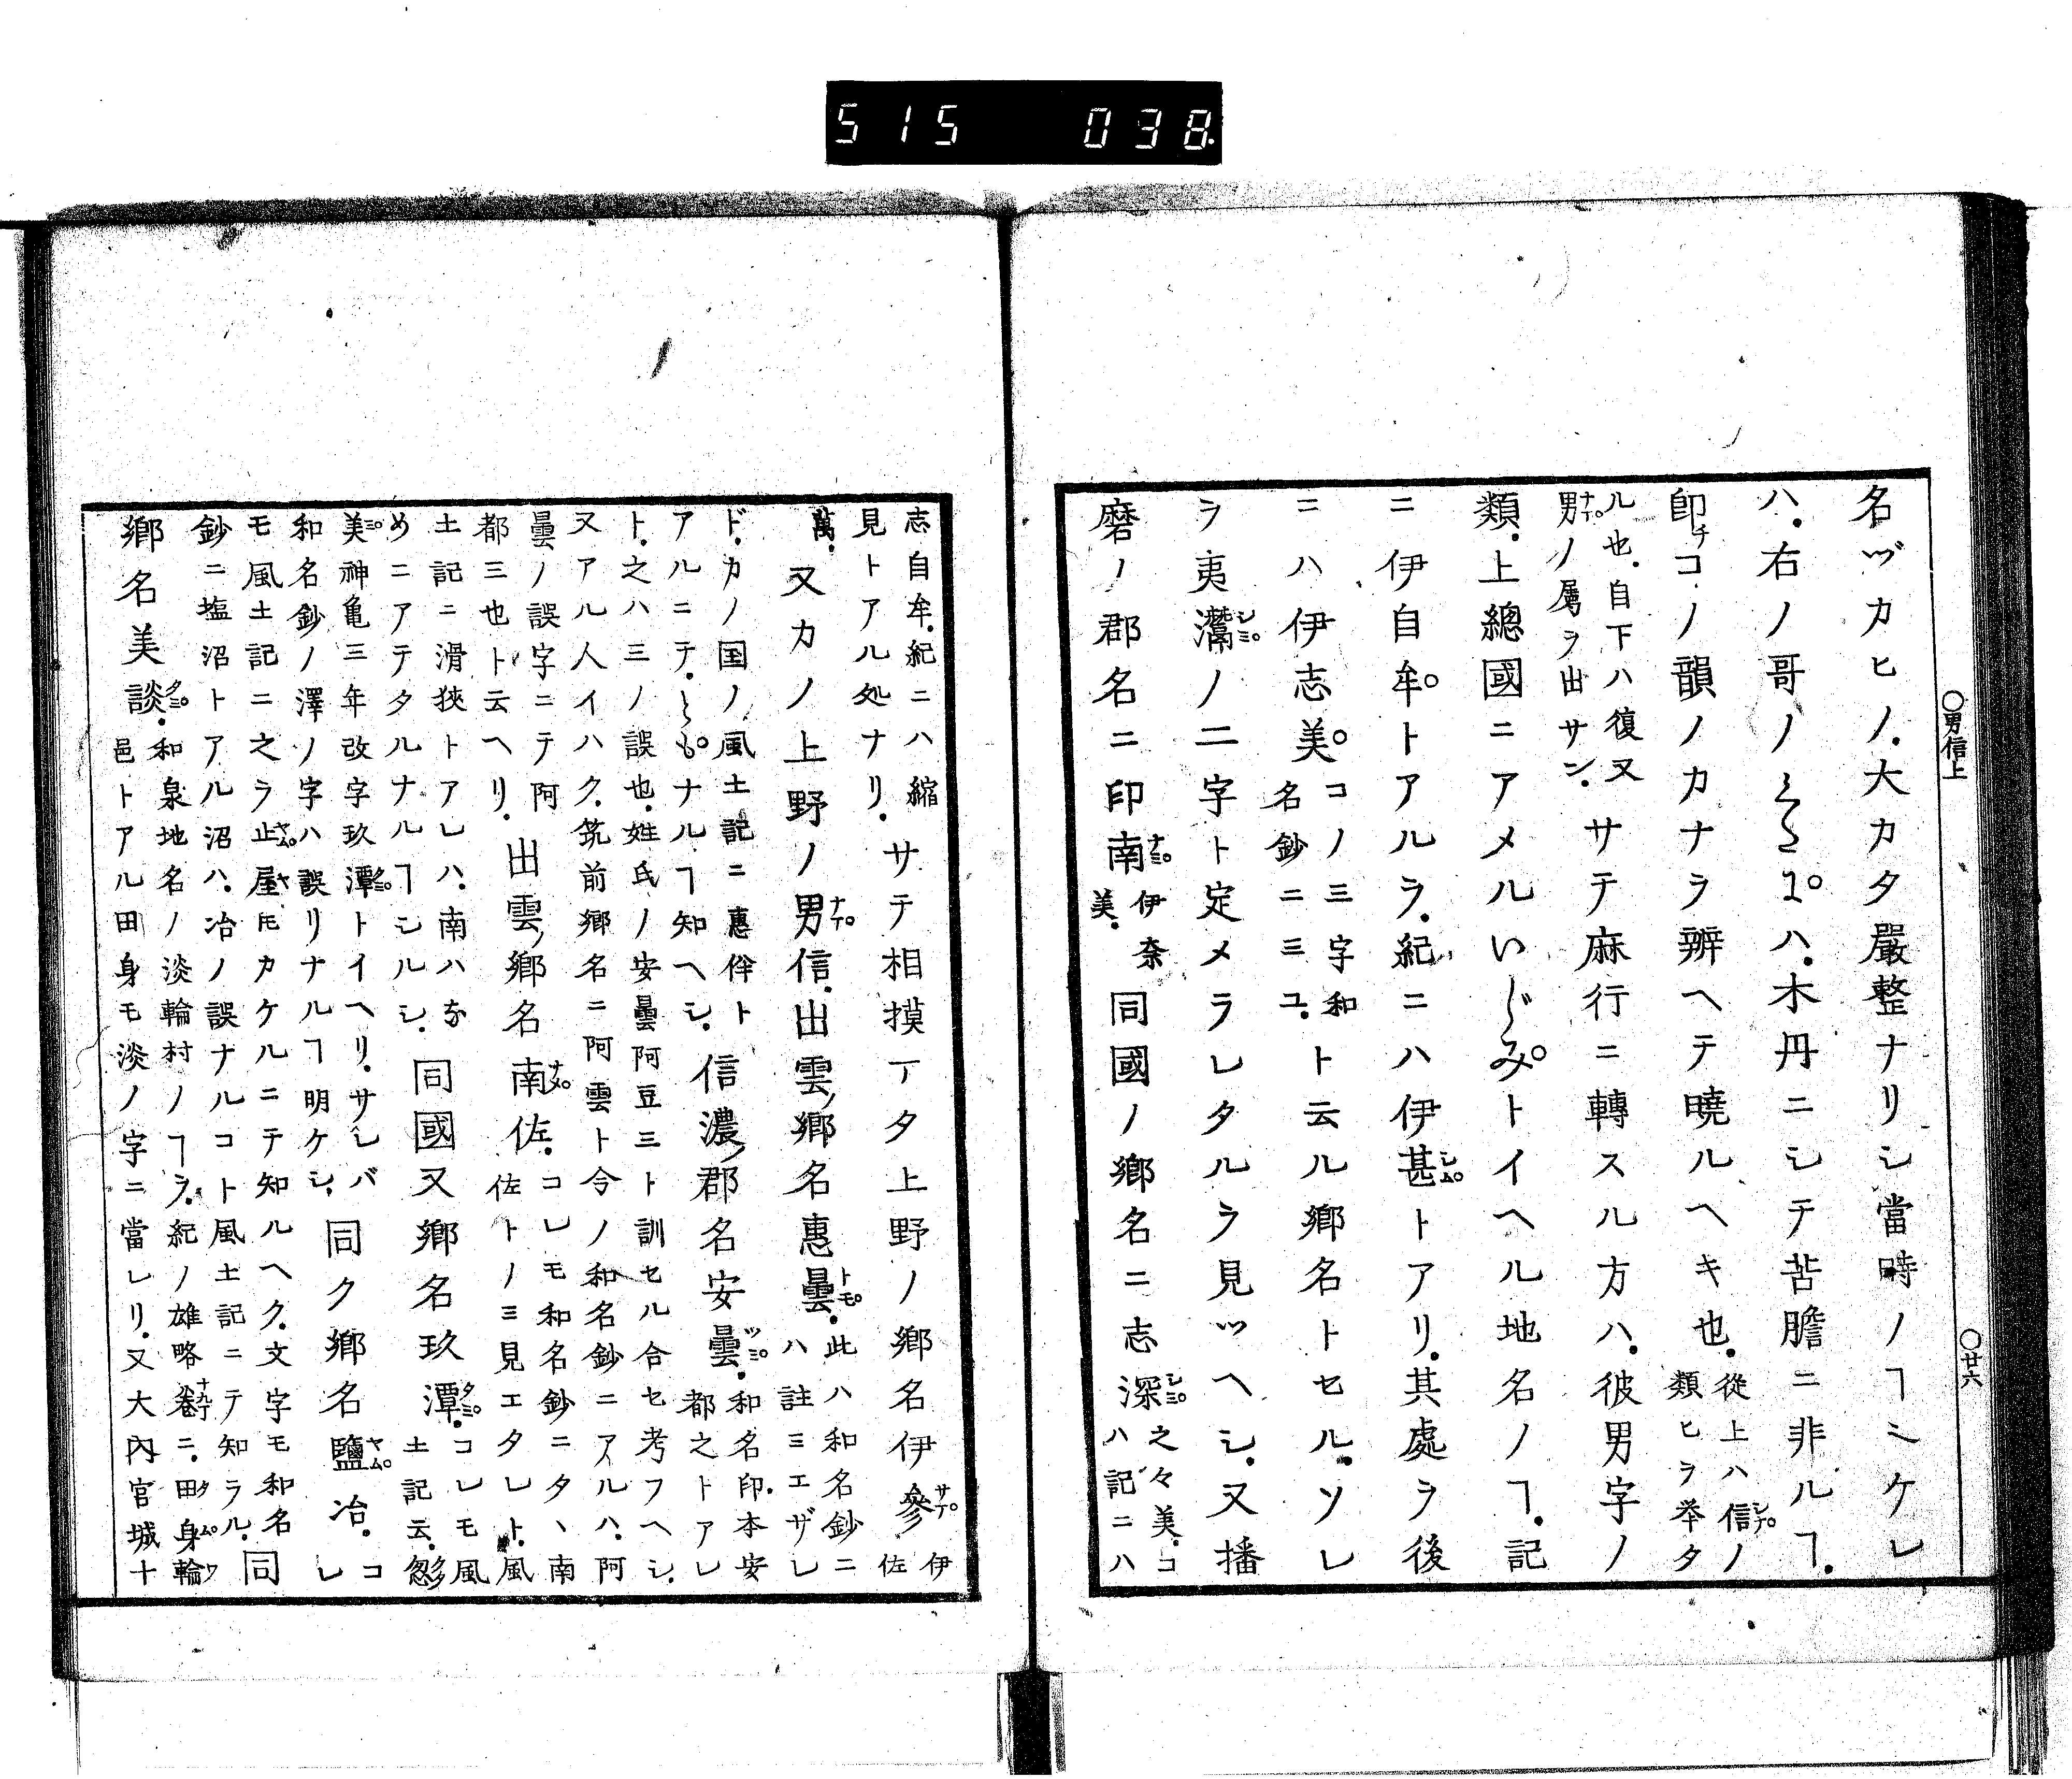 515 038
〇男信上
〇廿六
名ヅカヒノ大カタ嚴整ナリシ當時ノヿミシケレ
ハ右ノ哥ノハ木丹ニシテ苦膽ニ非ルヿ
卽チコノ韻ノカナラ辨ヘテ曉ルヘキ也
從上ハ信シナノ
類ヒヲ举タ
ル也自下ハ復又
男ナノ属ヲ出サン
サテ麻行ニ轉スル方ハ彼男字ノ
類上總國ニアメルいじみトイヘル地名ノヿ記
ニ伊自牟トアルラ紀ニハ伊甚シムトアリ其處ヲ後
ニハ伊志美
コノ三字和
名鈔ニミユ
ト云ル鄉名トセルソレ
ヲ夷灊シミノ二字ト定メラレタルヲ見ツヘシ又播
磨ノ郡名ニ印南ナミ
伊奈
美
同國ノ鄉名ニ志深シミ
之々美コ
ハ記ニハ
志自牟紀ニハ縮
見トアル処ナリ
サテ相摸マタ上野ノ鄉名伊參サマ
伊
佐
萬
又カノ上野ノ男ナ信出雲ノ鄉名惠曇トモ
此ハ和名鈔ニ
ハ註ミエザレ
ド、カノ国ノ風土記ニ惠伴ト
アルニテともナルヿ知ヘシ
信濃ノ郡名安曇ツミ
和名印本安
都之トアレ
ト之ハ三ノ誤也姓氏ノ安曇阿豆三ト訓セル合セ考フヘシ
又アル人イハク筑前鄉名ニ阿雲ト今ノ和名鈔ニアルハ阿
曇ノ誤字ニテ阿
都三也ト云ヘリ
出雲ノ鄉名南ナメ佐
コレモ和名鈔ニタヽ南
佐トノミ見エタレト風
土記ニ滑狹トアレハ南ハな
めニアテタルナルヿシルシ
同國又鄉名玖潭タミ
コレモ風
土記云忽
美ミ神亀三年改字玖潭タミトイヘリサレバ
和名鈔ノ澤ノ字ハ誤リナルヿ明ケシ
同ク鄉名鹽ヤム冶
コ
レ
モ風土記ニ之ラ止ヤム屋ヤ𪜈カケルニテ知ルヘク文字モ和名
鈔ニ塩沼トアル沼ハ冶ノ誤ナルコト風土記ニテ知ラル
同
鄉名美談タミ
和泉地名ノ淡輪村ノヿラ紀ノ雄略卷十九丁ニ田タ身ム輪ワ
邑トアル田身モ淡ノ字ニ當レリ又大內官城十